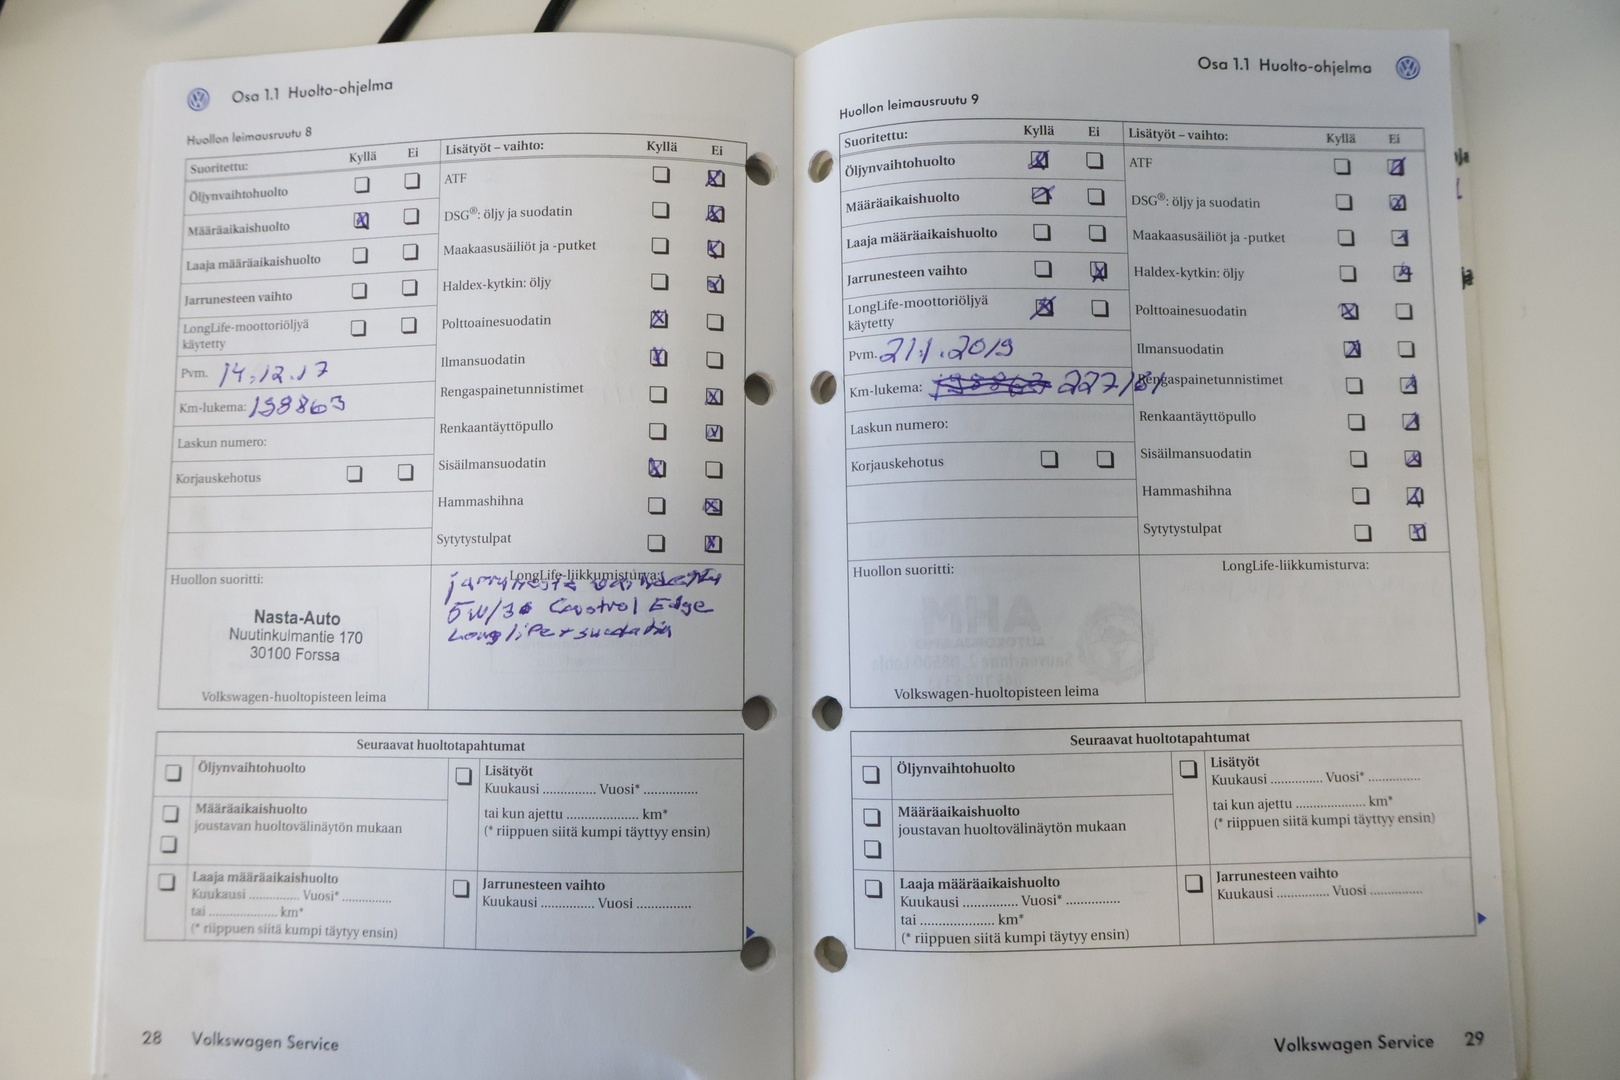 Osa 1.1 Huolto-ohjelma
Huollon leimausruutu 8
Suoritettu: Kyllä Ei
Öljynvaihtohuolto
Määräaikaishuolto
Laaja määräaikaishuolto
Jarrunesteen vaihto
LongLife-moottoriöljyä
käytetty
Pvm. 14.12.17
Km-lukema: 198863
Laskun numero:
Korjauskehotus
Lisätyöt – vaihto: Kyllä Ei
ATF
DSG®: öljy ja suodatin
Maakaasusäiliöt ja -putket
Haldex-kytkin: öljy
Polttoainesuodatin
Ilmansuodatin
Rengaspainetunnistimet
Renkaantäyttöpullo
Sisäilmansuodatin
Hammashihna
Sytytystulpat
Huollon suoritti:
Nasta-Auto
Nuutinkulmantie 170
30100 Forssa
Volkswagen-huoltopisteen leima
LongLife-liikkumisturva:
jarruneste vaihdettu
5W/30 Castrol Edge
Longlife + suodatin
Seuraavat huoltotapahtumat
Öljynvaihtohuolto
Määräaikaishuolto
joustavan huoltovälinäytön mukaan
Laaja määräaikaishuolto
Kuukausi .............. Vuosi* ..............
tai ................... km*
(* riippuen siitä kumpi täytyy ensin)
Lisätyöt
Kuukausi .............. Vuosi* ..............
tai kun ajettu ................... km*
(* riippuen siitä kumpi täyttyy ensin)
Jarrunesteen vaihto
Kuukausi .............. Vuosi ..............
28 Volkswagen Service
Osa 1.1 Huolto-ohjelma
Huollon leimausruutu 9
Suoritettu: Kyllä Ei
Öljynvaihtohuolto
Määräaikaishuolto
Laaja määräaikaishuolto
Jarrunesteen vaihto
LongLife-moottoriöljyä
käytetty
Pvm. 21.1.2019
Km-lukema: 198863 227161
Laskun numero:
Korjauskehotus
Lisätyöt – vaihto: Kyllä Ei
ATF
DSG®: öljy ja suodatin
Maakaasusäiliöt ja -putket
Haldex-kytkin: öljy
Polttoainesuodatin
Ilmansuodatin
Rengaspainetunnistimet
Renkaantäyttöpullo
Sisäilmansuodatin
Hammashihna
Sytytystulpat
Huollon suoritti:
Volkswagen-huoltopisteen leima
LongLife-liikkumisturva:
Seuraavat huoltotapahtumat
Öljynvaihtohuolto
Määräaikaishuolto
joustavan huoltovälinäytön mukaan
Laaja määräaikaishuolto
Kuukausi .............. Vuosi* ..............
tai ................... km*
(* riippuen siitä kumpi täytyy ensin)
Lisätyöt
Kuukausi .............. Vuosi* ..............
tai kun ajettu ................... km*
(* riippuen siitä kumpi täyttyy ensin)
Jarrunesteen vaihto
Kuukausi .............. Vuosi ..............
Volkswagen Service 29